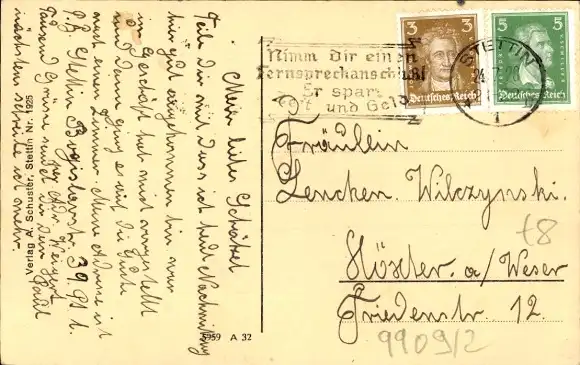 Mein liebes Schätzel
Teile Dir mit dass ich heut Nachmittag
hier gut angekommen bin war
im Geschäft hat mich angestellt
und dann ging es auf die Suche
nach einem Zimmer. Meine Adresse ist
Stettin Bogislavstr. 39
Tausend Grüße sendet Dir Dein Paul
nächstens schreibe ich mehr.
Verlag W. Schuster, Stettin Nr. 1925
5959 A 32
Nimm Dir einen
Fernsprechanschluß!
Er spart
Zeit und Geld
3 3
Deutsches Reich
5 5
Deutsches Reich
STETTIN
1
Fräulein
Lenchen Wilczynski.
Höxter. a/Weser
Friedenstr. 12.
t8
9909/2